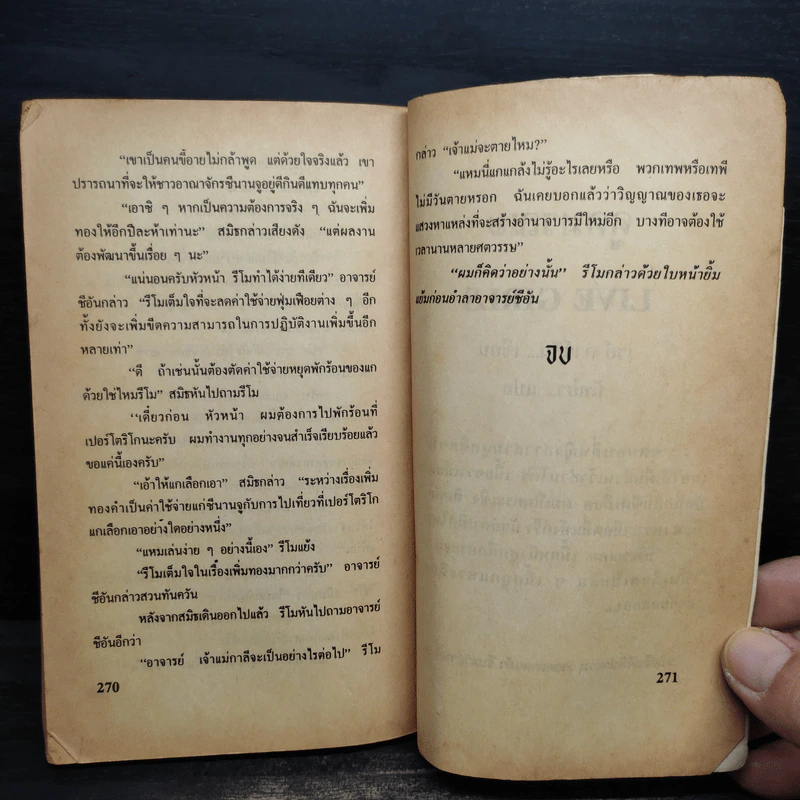 “เขาเป็นคนขี้อายไม่กล้าพูด แต่ด้วยใจจริงแล้ว เขา
ปรารถนาที่จะให้ชาวอาณาจักรซีนานจูอยู่ดีกินดีแทบทุกคน”
“เอาซิ ๆ หากเป็นความต้องการจริง ๆ ฉันจะเพิ่ม
ทองให้อีกปีละห้าเท่านะ” สมิธกล่าวเสียงดัง “แต่ผลงาน
ต้องพัฒนาขึ้นเรื่อย ๆ นะ”
“แน่นอนครับหัวหน้า รีโมทำได้ง่ายทีเดียว” อาจารย์
ชีอันกล่าว “รีโมเต็มใจที่จะลดค่าใช้จ่ายฟุ่มเฟือยต่าง ๆ อีก
ทั้งยังจะเพิ่มขีดความสามารถในการปฏิบัติงานเพิ่มขึ้นอีก
หลายเท่า”
“ดี ถ้าเช่นนั้นต้องตัดค่าใช้จ่ายหยุดพักร้อนของแก
ด้วยใช่ไหมรีโม” สมิธหันไปถามรีโม
“เดี๋ยวก่อน หัวหน้า ผมต้องการไปพักร้อนที่
เปอร์โตริโกนะครับ ผมทำงานทุกอย่างจนสำเร็จเรียบร้อยแล้ว
ขอแค่นี้เองครับ”
“เอ้าให้แกเลือกเอา” สมิธกล่าว “ระหว่างเรื่องเพิ่ม
ทองคำเป็นค่าใช้จ่ายแก่ซีนานจูกับการไปเที่ยวที่เปอร์โตริโก
แกเลือกเอาอย่างใดอย่างหนึ่ง”
“แหมเล่นง่าย ๆ อย่างนี้เอง” รีโมแย้ง
“รีโมเต็มใจในเรื่องเพิ่มทองมากกว่าครับ” อาจารย์
ชีอันกล่าวสวนทันควัน
หลังจากสมิธเดินออกไปแล้ว รีโมหันไปถามอาจารย์
ชีอันอีกว่า
“อาจารย์ เจ้าแม่กาลีจะเป็นอย่างไรต่อไป” รีโม
270
กล่าว “เจ้าแม่จะตายไหม?”
“แหมนี่แกแกล้งไม่รู้อะไรเลยหรือ พวกเทพหรือเทพี
ไม่มีวันตายหรอก ฉันเคยบอกแล้วว่าวิญญาณของเธอจะ
แสวงหาแหล่งที่จะสร้างอำนาจบารมีใหม่อีก บางทีอาจต้องใช้
เวลานานหลายศตวรรษ”
“ผมก็คิดว่าอย่างนั้น” รีโมกล่าวด้วยใบหน้ายิ้ม
แย้มก่อนอำลาอาจารย์ชีอัน
จบ
271